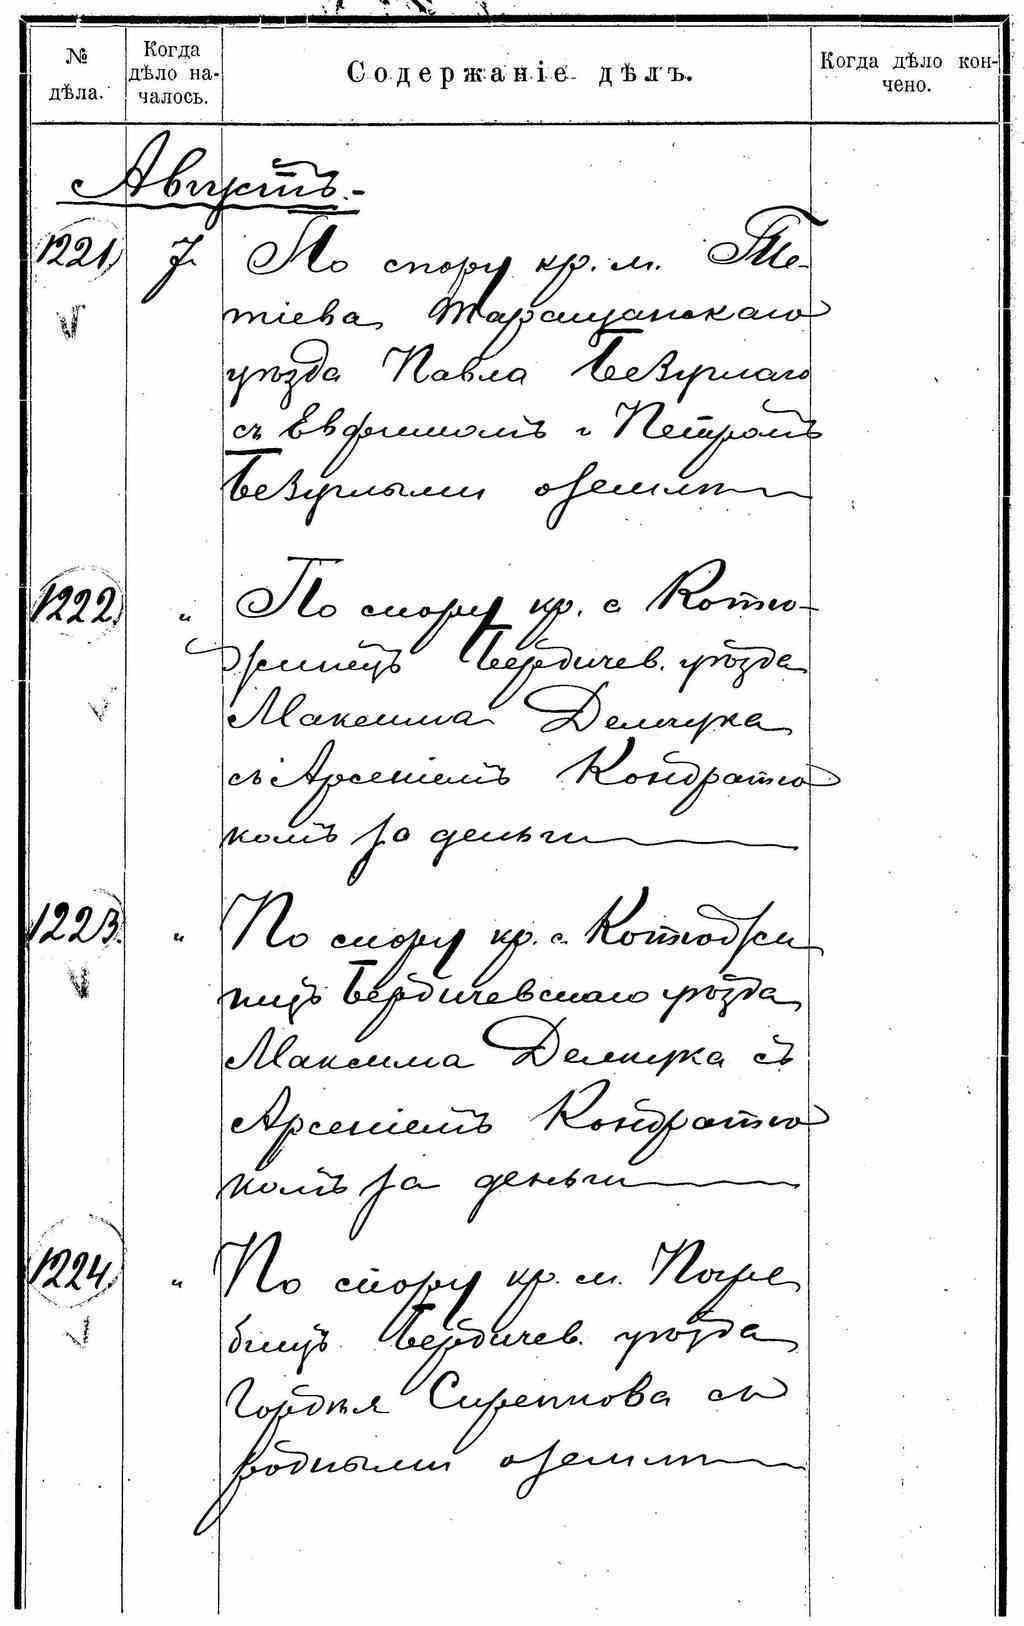 № дѣла.
Когда дѣло началось.
Содержаніе дѣлъ.
Когда дѣло кончено.
Августъ.-
1221. 7. По спору кр. м. Те-
тіева Таращанскаго
уѣзда Павла Безуглаго
съ Евфимомъ и Петромъ
Безуглыми о землѣ
1222. " По спору кр. с Котю-
жинецъ Бердичев. уѣзда
Максима Демчука
съ Арсеніемъ Кондратю
комъ за деньги
1223. " По спору кр. с. Котюжи
нецъ Бердичевскаго уѣзда
Максима Демчука съ
Арсеніемъ Кондратю
комъ за деньги
1224. " По спору кр. м. Погре
бищъ Бердичев. уѣзда
Гордѣя съ
родными о землѣ